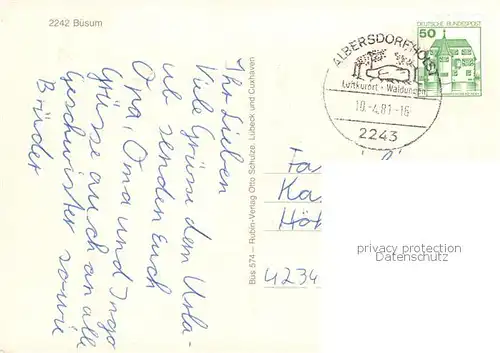 2242 Büsum
Ihr Lieben
Viele Grüsse dem Urla-
ub senden Euch
Opa, Oma und Ingo
Grüsse auch an alle
Geschwister sowie
Brüder
Büs 574 – Rubin-Verlag Otto Schulze, Lübeck und Cuxhaven
ALBERSDORF, HOLST
Luftkurort · Waldungen
10.-4.81.-16
2243
50
DEUTSCHE BUNDESPOST
Fa
Ka
Hö
4234
privacy protection
Datenschutz